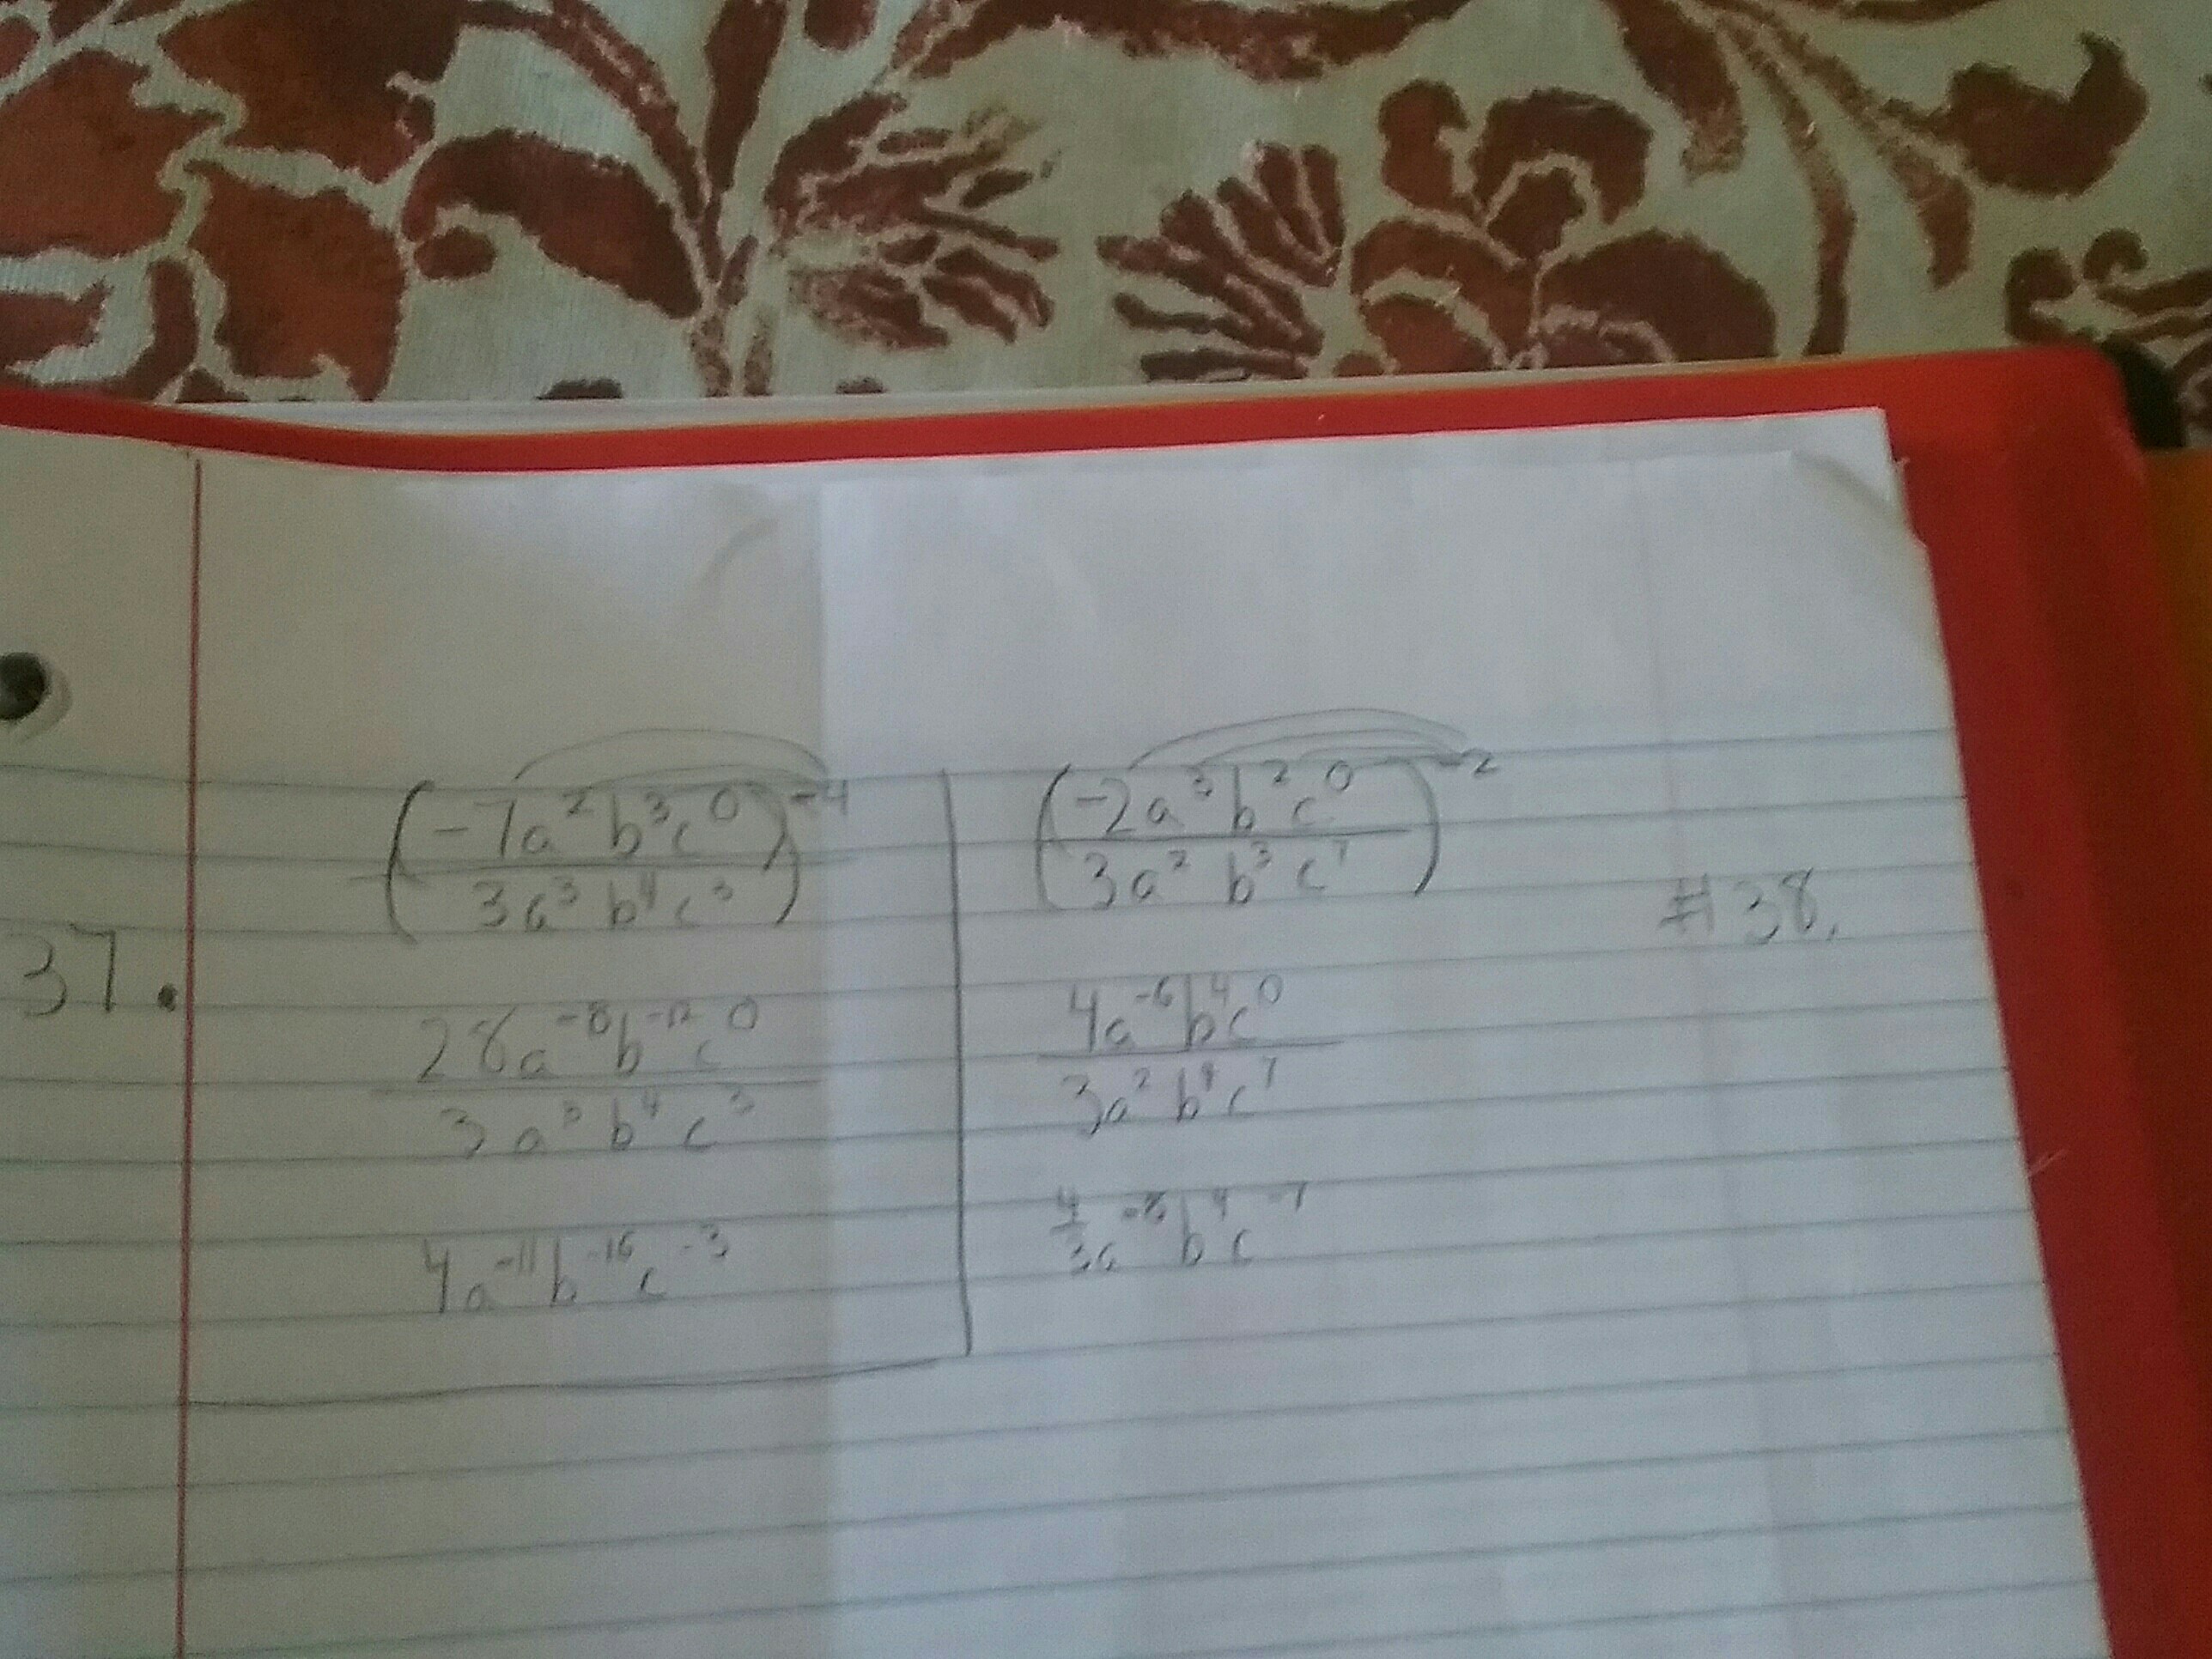 37.
(-7a²b³c⁰ / 3a³b⁴c³)⁻⁴
28a⁻⁸b⁻¹²c⁰ / 3a³b⁴c³
4a⁻¹¹b⁻¹⁶c⁻³
#38.
(-2a³b²c⁰ / 3a²b³c⁷)⁻²
4a⁻⁶b⁴c⁰ / 3a²b⁸c⁷
4/3a⁻⁸b⁴c⁻⁷